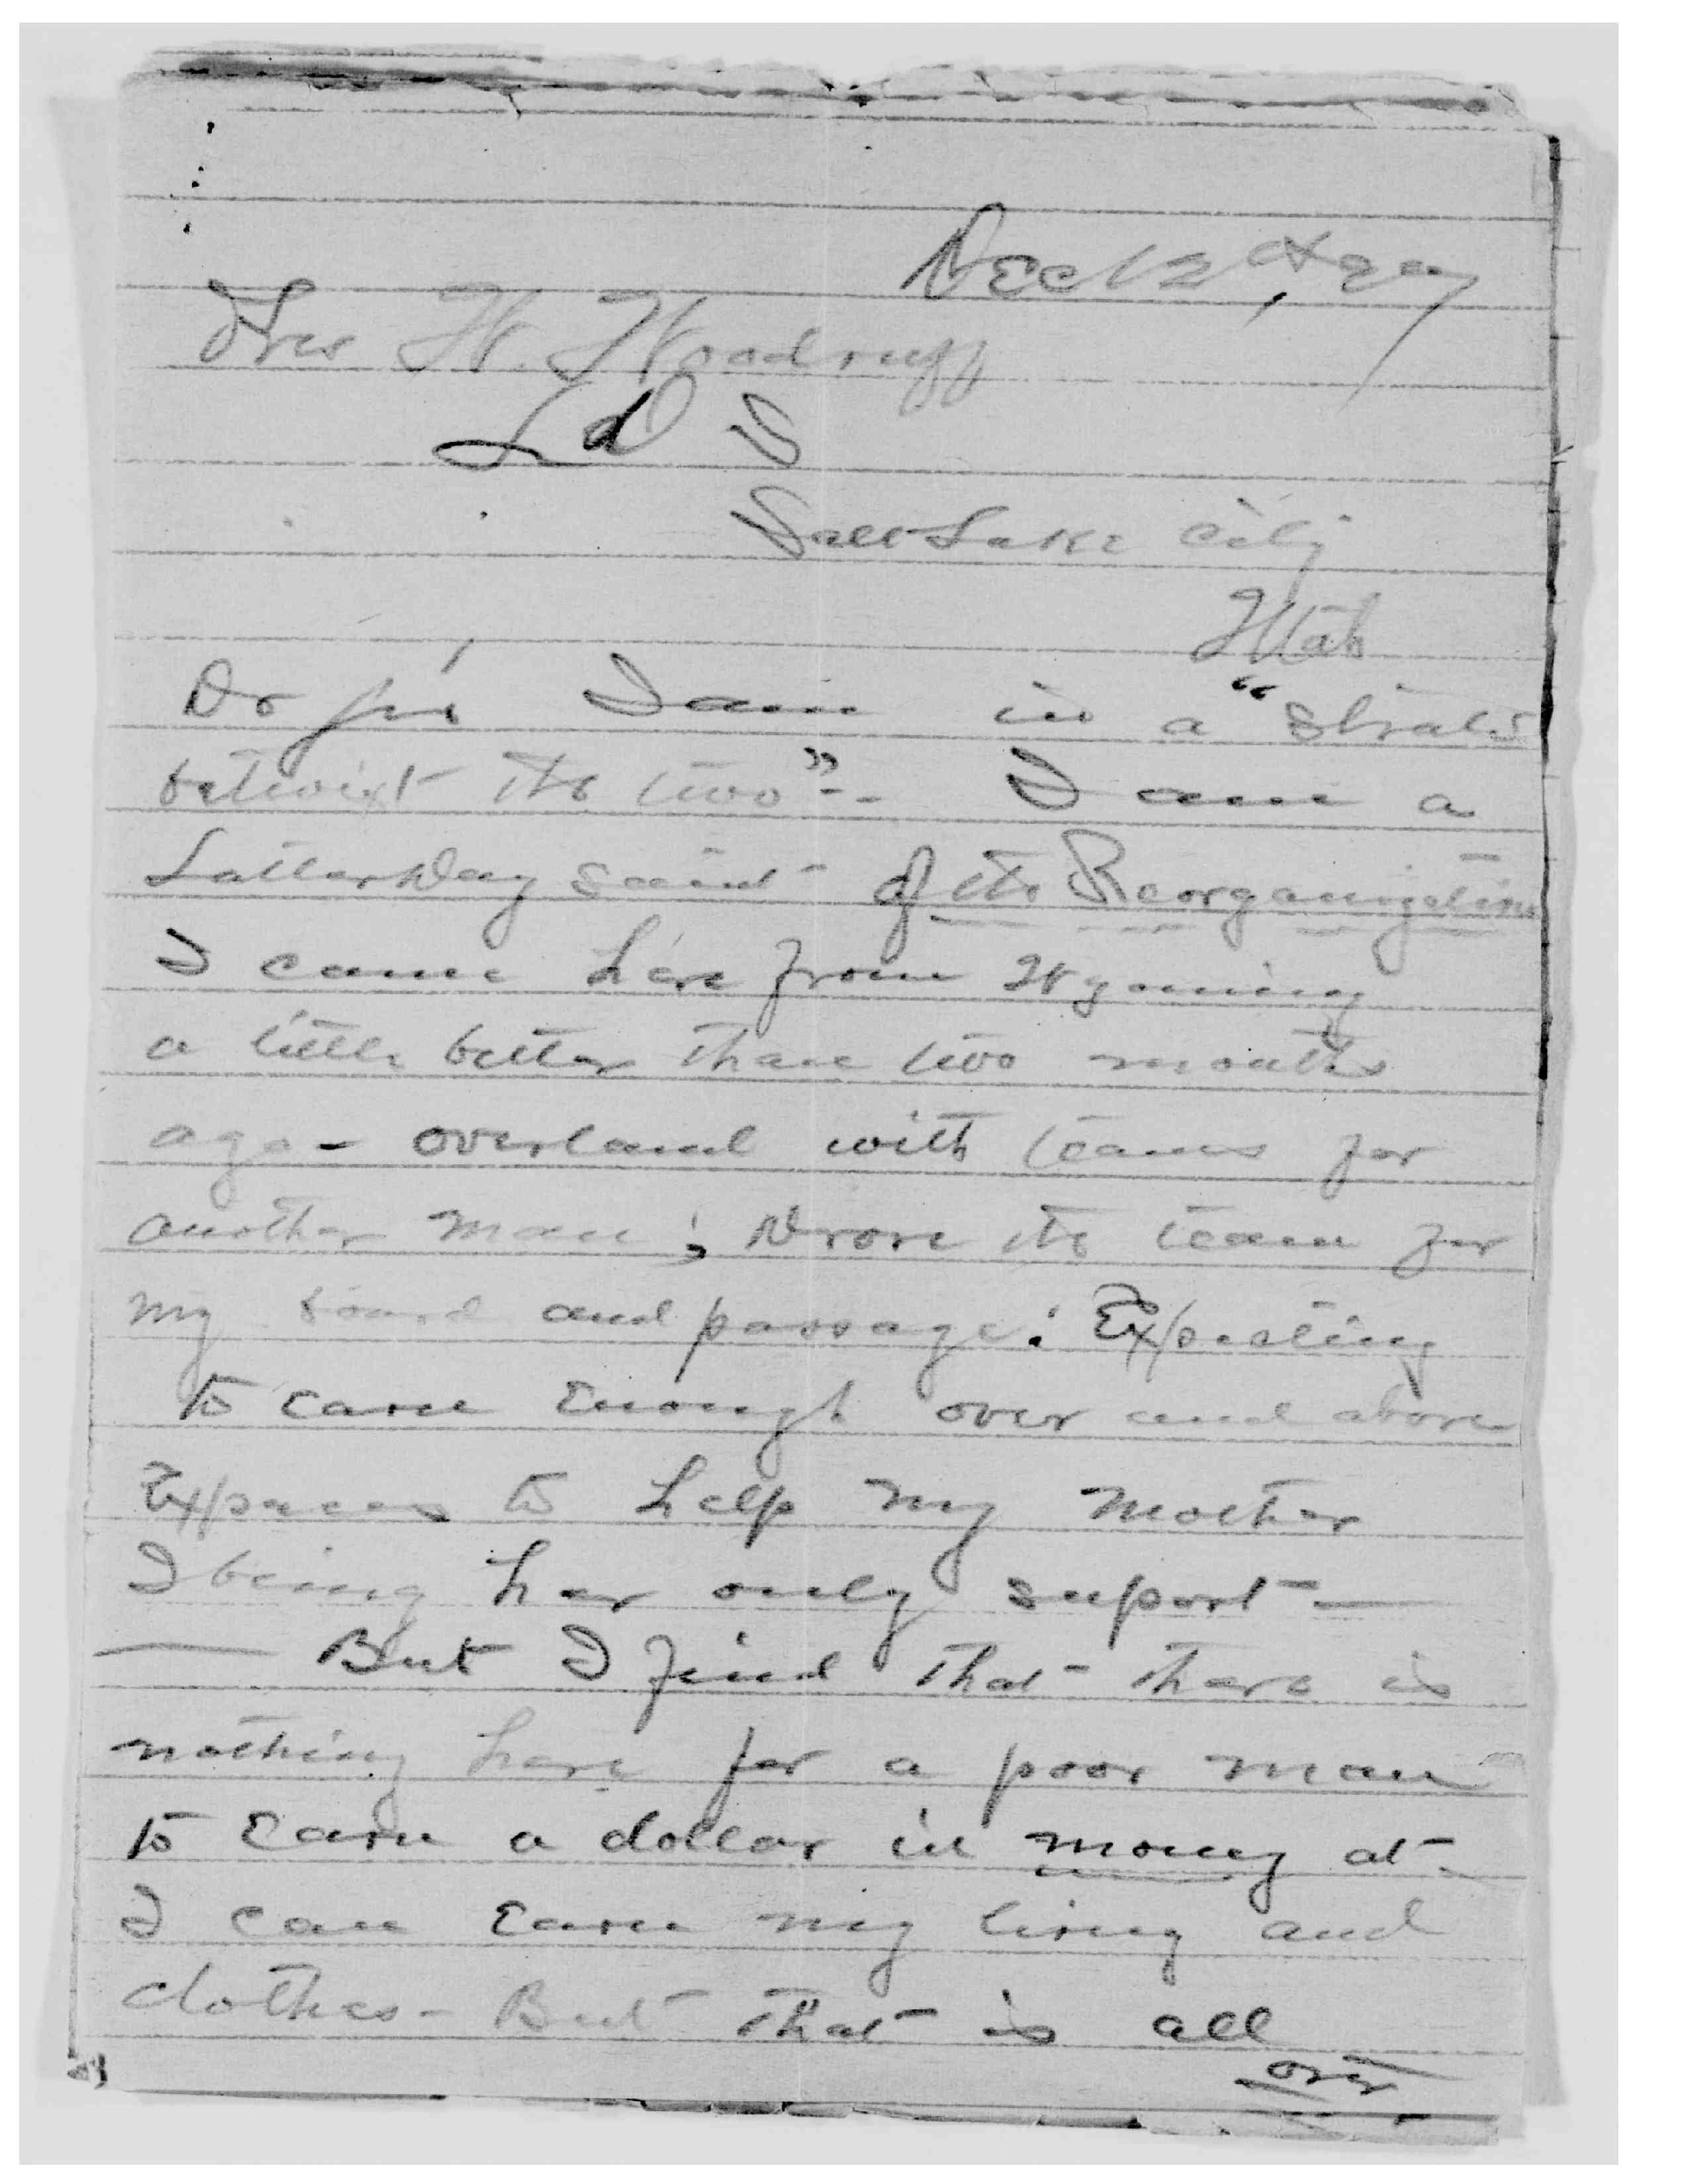 Dec 12th, 
Pres W. Woodruff
L d S
Salt Lake City
Utah
Dr sir I am in a "strats
betwixt the two"--  I am a
Latter Day Saint of the Reorganization
I came here from Wyoming
a little better than two months
ago - overland with teams for
another man; Drove the team for
my board and passage: Expecting
to earn Enough over and above
Expences to help my mother
I being her only suport —
— But I find that there is
nothing here for a poor man
to Earn a dollar in money at-
I can Earn my living and
clothes - But that is all
over